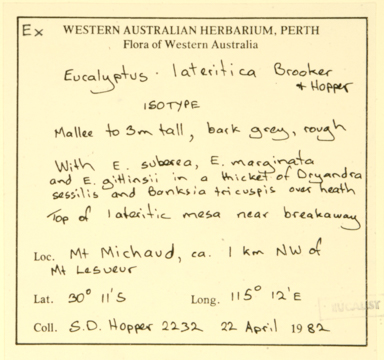 Ex WESTERN AUSTRALIAN HERBARIUM, PERTH
Flora of Western Australia
Eucalyptus · lateritica Brooker
+ Hopper
ISOTYPE
Mallee to 3m tall, bark grey, rough
With E. suberea, E. marginata
and E. gittinsii in a thicket of Dryandra
sessilis and Banksia tricuspis over heath
Top of lateritic mesa near breakaway
Loc. Mt Michaud, ca. 1 km NW of
Mt Lesueur
Lat. 30° 11'S Long. 115° 12'E
Coll. S.D. Hopper 2232 22 April 1982